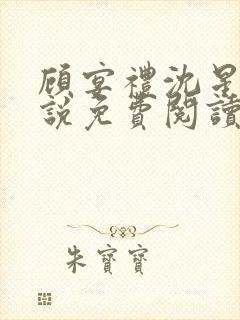 顾宴禮沈星
説免費閱讀
朱寶寶